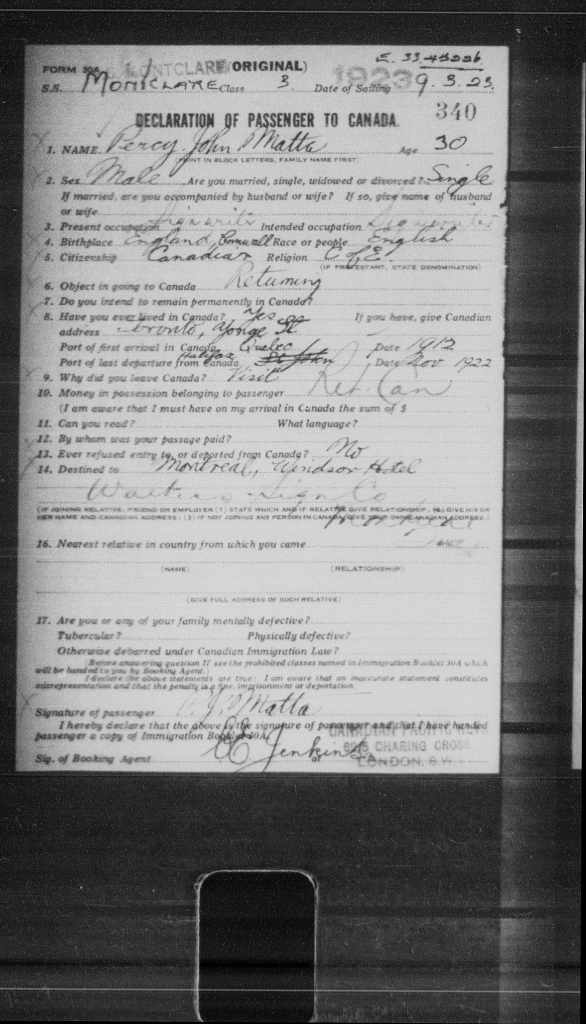 FORM 30A MONTCLARE (ORIGINAL)
S.S. MONTCLARE Class 3. Date of Sailing 1923 9.3.23.
340
DECLARATION OF PASSENGER TO CANADA.
1. NAME Percy John Matta Age 30
(PRINT IN BLOCK LETTERS, FAMILY NAME FIRST)
2. Sex Male Are you married, single, widowed or divorced? Single
If married, are you accompanied by husband or wife? If so, give name of husband
or wife
3. Present occupation Intended occupation
4. Birthplace England, Cornwall Race or people English
5. Citizenship Canadian Religion C of E.
(IF PROTESTANT, STATE DENOMINATION)
6. Object in going to Canada Returning
7. Do you intend to remain permanently in Canada?
8. Have you ever lived in Canada? Yes If you have, give Canadian
address Toronto, Yonge St
Port of first arrival in Canada Quebec Date 1912
Port of last departure from Canada Halifax St John Date Nov 1922
9. Why did you leave Canada? Visit Ret Can
10. Money in possession belonging to passenger
(I am aware that I must have on my arrival in Canada the sum of $
11. Can you read? What language?
12. By whom was your passage paid?
13. Ever refused entry to, or deported from Canada? No
14. Destined to Montreal, Windsor Hotel
Sign Co
(IF JOINING RELATIVE, FRIEND OR EMPLOYER (1) STATE WHICH AND IF RELATIVE GIVE RELATIONSHIP; (2) GIVE HIS OR
HER NAME AND CANADIAN ADDRESS; (3) IF NOT JOINING ANY PERSON IN CANADA GIVE YOUR OWN CANADIAN ADDRESS.)
16. Nearest relative in country from which you came
(NAME) (RELATIONSHIP)
(GIVE FULL ADDRESS OF SUCH RELATIVE)
17. Are you or any of your family mentally defective?
Tubercular? Physically defective?
Otherwise debarred under Canadian Immigration Law?
(Before answering question 17 see the prohibited classes named in Immigration Booklet 30A which
will be handed to you by Booking Agent.)
I declare the above statements are true: I am aware that an inaccurate statement constitutes
misrepresentation and that the penalty is a fine, imprisonment or deportation.
Signature of passenger Matta
I hereby declare that the above is the signature of passenger and that I have handed
passenger a copy of Immigration Booklet 30A.
CANADIAN PACIFIC RLY.
62/5 CHARING CROSS
Sig. of Booking Agent Jenkins at LONDON, S.W.